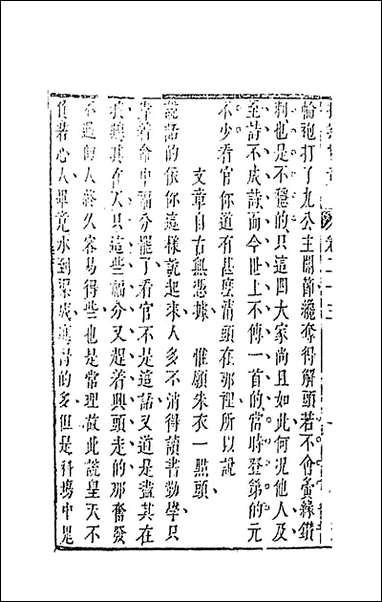 輪袍打了九公主關節纔奪得解頭若不會夤緣鑽
刺也是不穩的只這四大家尚且如此何況他人及
至詩不成詩而今世上不傳一首的當時登第的元
不少看官你道有甚麼清頭在那裡所以說
文章自古無憑據 惟願朱衣一點頭
說話的依你這樣說起來人多不消得讀書勤學只
靠着命中福分罷了看官不是這話又道是盡其在
我聽其在天只這些福分又趕着興頭走的那奮發
不過的人終久容易得些也是常理故此說皇天不
負苦心人畢竟水到渠成應得的多但是科場中鬼